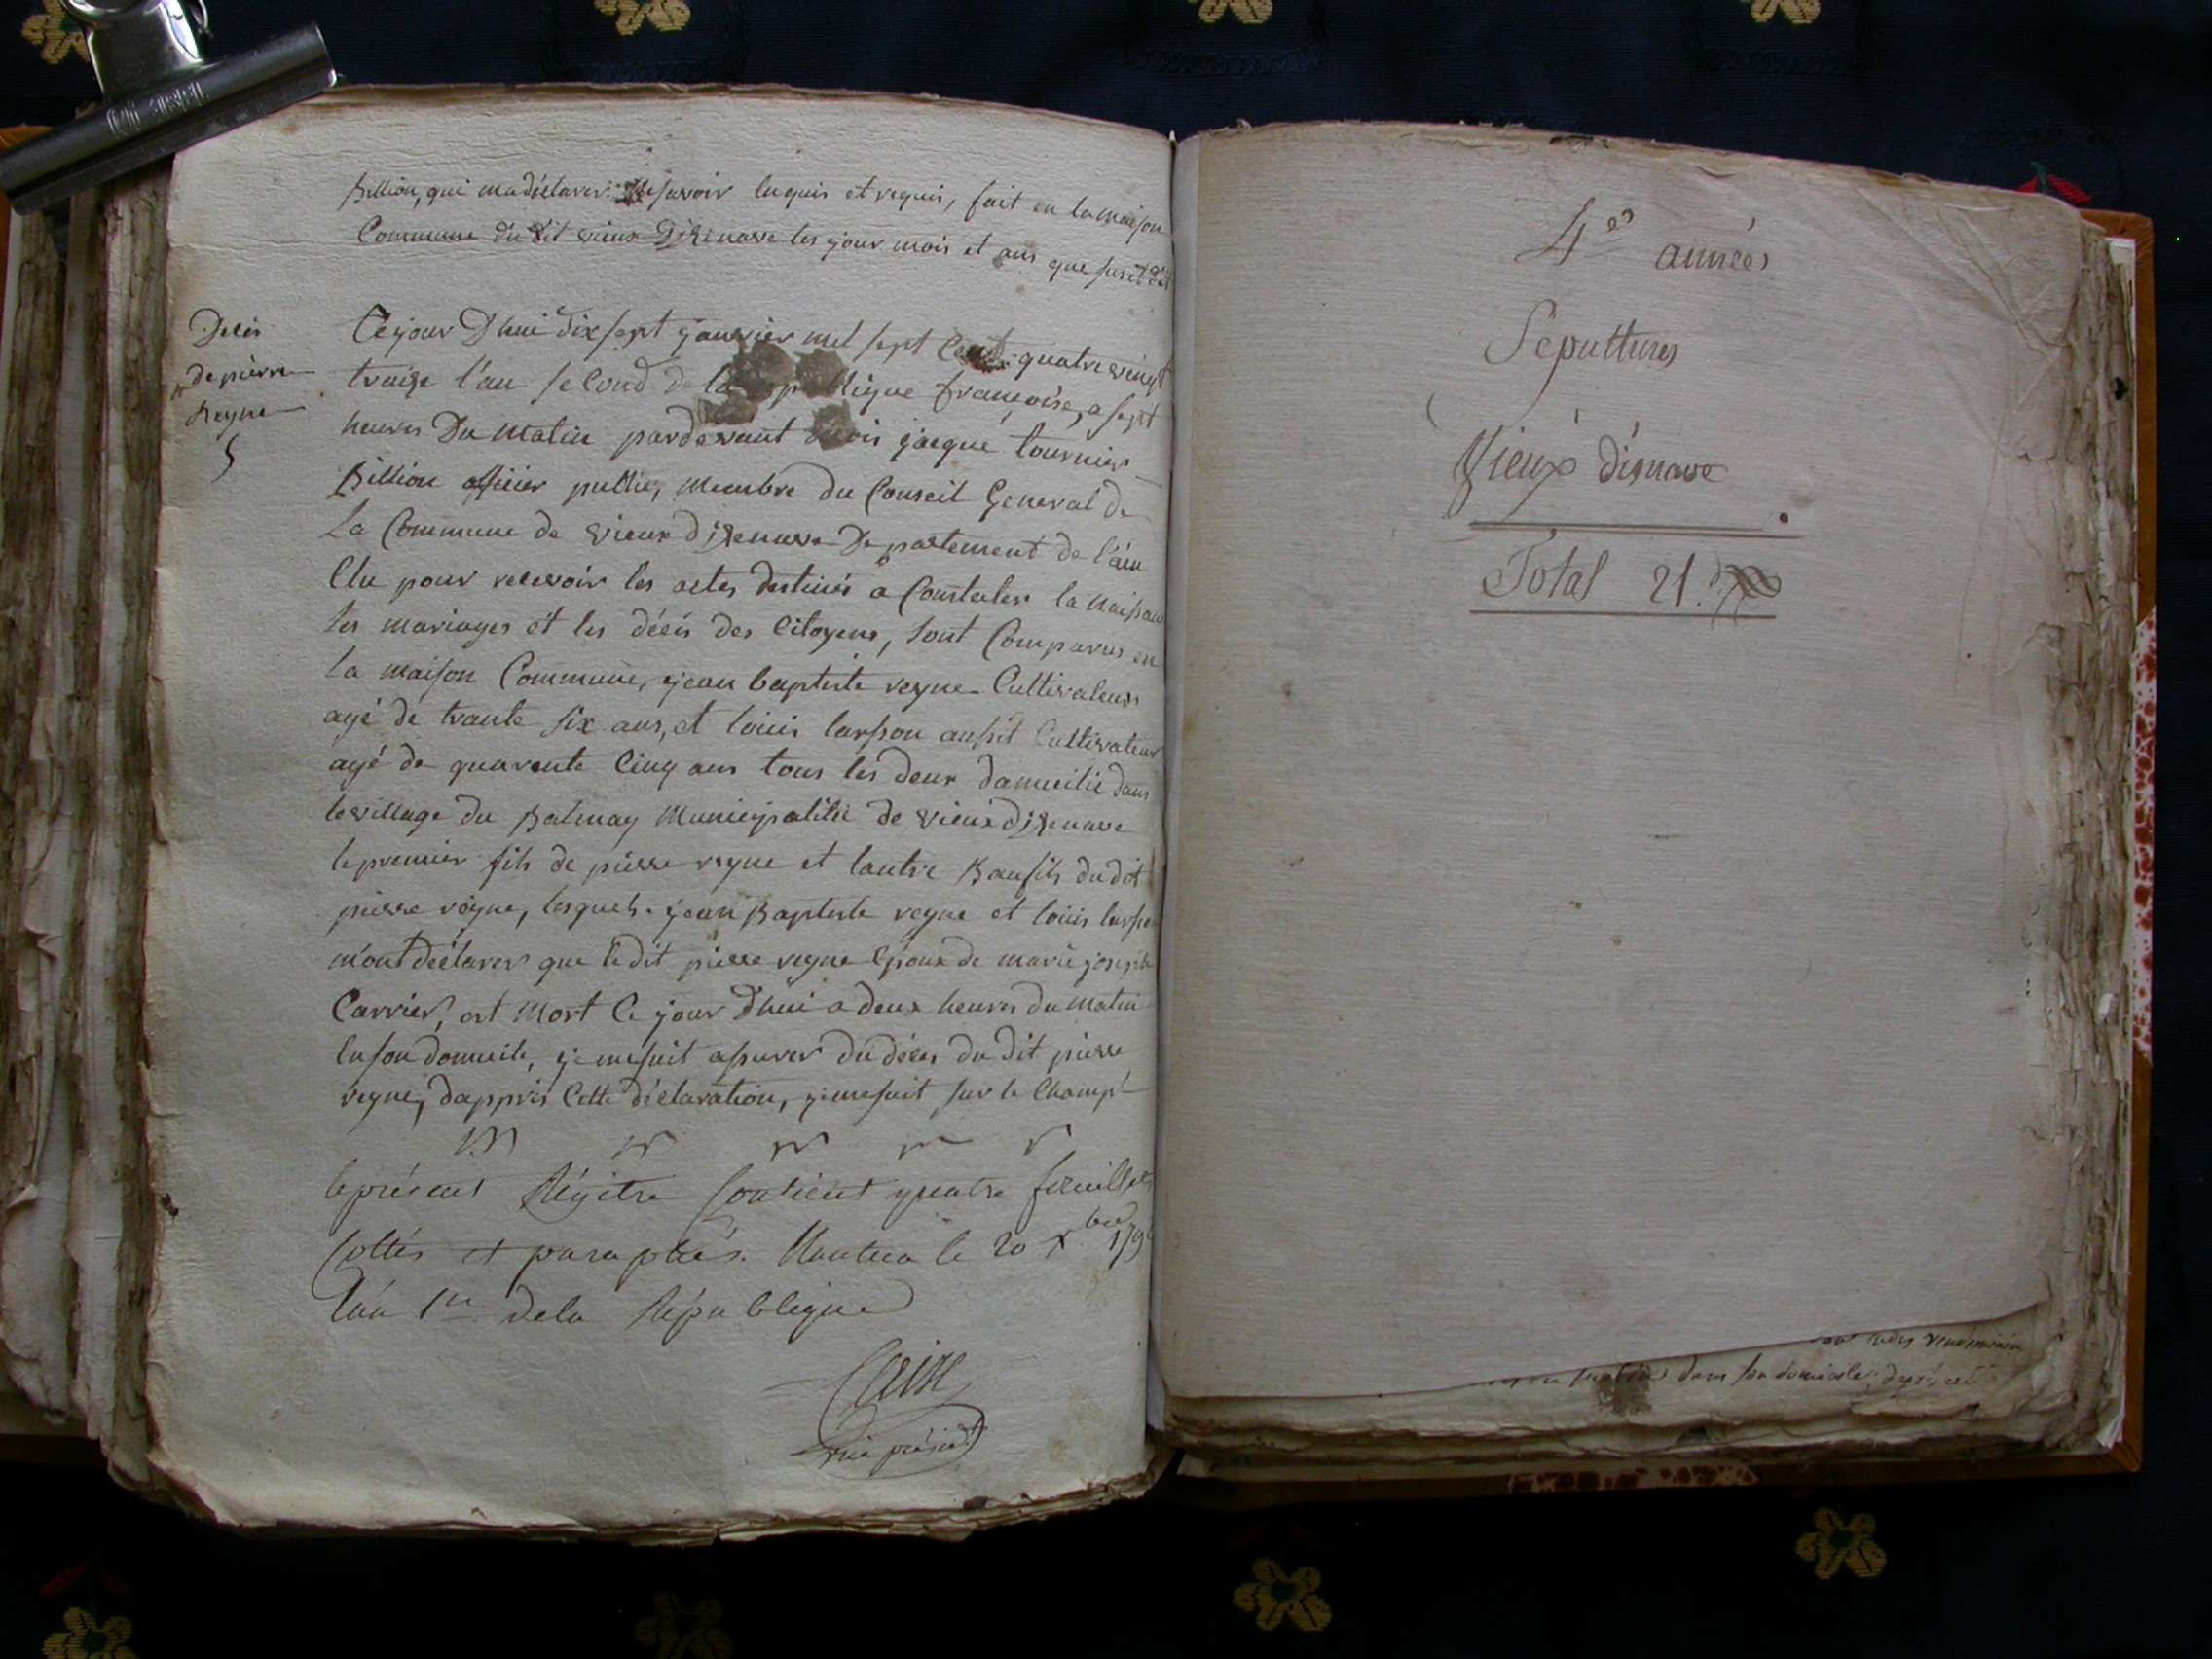 Billion, qui ma déclarer ne savoir enquis et requis, fait en la maison
Commune du dit vieux Disenave les jour mois et ans que sus est dit
Décès
de pierre
Reyne
Ce jour Dhui dix sept janvier mil sept Cent quatre vingt
traize l'an second de la publique françoise, a sept
heures Du matin pardevant moi jacque tournier
Billion officier public, membre du Conseil General de
La Commune de vieux disenave Departement de l'ain
Elu pour recevoir les actes destinés a Constater la naissan
les mariages et les décès des Citoyens, sont Comparus en
la maison Commune, jean baptiste reyne Cultivateur
agé de trante six ans, et louis larson aussit Cultivateur
agé de quarente Cinq ans tous les deux damicilié dans
le village du Balmay Municipalitée de vieux disenave
le premier fils de pierre reyne et lautre Baufils du dit
pierre reyne, lesquels jean Baptiste reyne et louis
mont déclarer que le dit pierre reyne Epoux de marie joseph
Carrier, est Mort Ce jour Dhui a deux heures du matin
En son domicile, je me suit assurer du déces du dit pierre
reyne, dapprès Cette déclaration, je me suit sur le Champ
le présent Régitre Contient quatre feuillets
Cottés et paraphés. Nantua le 20 Xbre 179
L'an 1er de la République
vice président
4es années
Sepultures
Vieux d'isnave
Total 21.
dans son domicile, d'après cette